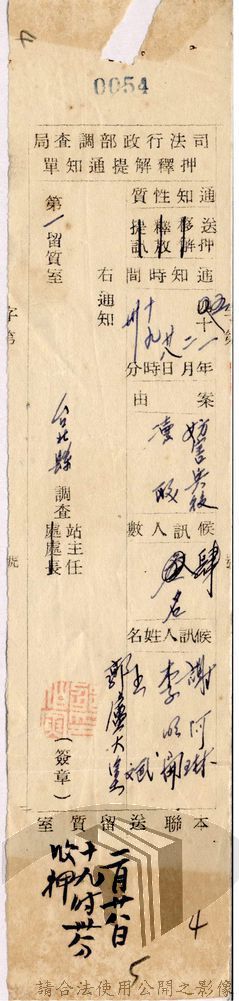 4
0054
司法行政部調查局
押釋解提通知單
通知性質
送押
移解
釋放
提訊
通知時間
五十一年二月廿八日十九時卅分
案由
妨害兵役
候訊人數
肆名
候訊人姓名
謝阿琳
李
王
郭
右通知
第一留質室
台北縣調查
站主任
處處長
（簽章）
字第
號
本聯送留質室
二月廿八日
十九时卅分
收押
4
5
請合法使用公開之影像